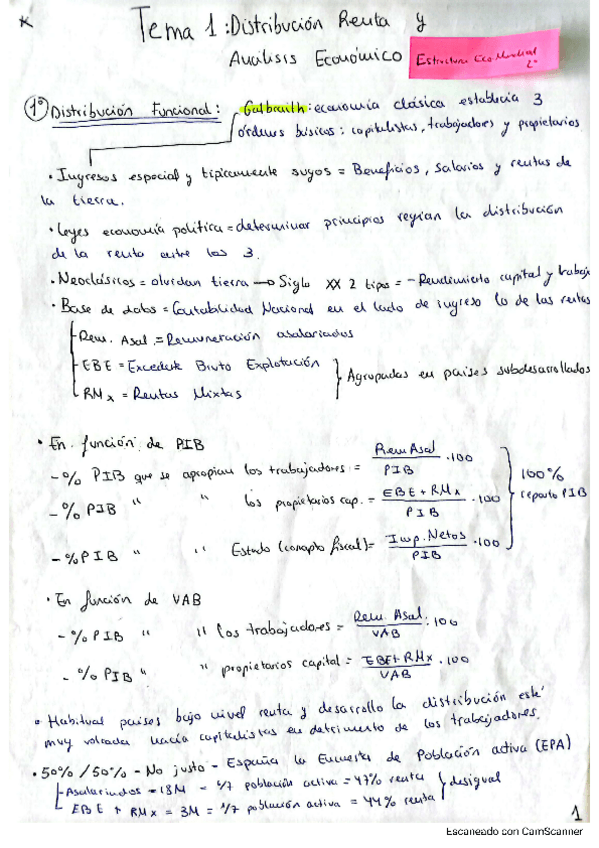 Tema 1: Distribución Renta y
Análisis Económico
Estructura Eco Mundial
2º
1º Distribución Funcional: Galbraith: economía clásica establecía 3
órdenes básicos: capitalistas, trabajadores y propietarios
• Ingresos especial y típicamente suyos = Beneficios, salarios y rentas de
la tierra.
• Leyes economía política = determinar principios regían la distribución
de la renta entre las 3.
• Neoclásicos = olvidan tierra → Siglo XX 2 tipos = - Rendimiento capital y trabajo
• Base de datos = Contabilidad Nacional en el lado de ingreso lo de las rentas
Rem. Asal. = Remuneración asalariados
EBE = Excedente Bruto Explotación
RMx = Rentas Mixtas
Agrupadas en países subdesarrollados
• En función de PIB
- % PIB que se apropian los trabajadores = Rem Asal / PIB · 100
- % PIB " " los propietarios cap. = EBE + RMx / PIB · 100
- % PIB " " Estado (concepto fiscal) = Imp. Netos / PIB · 100
100%
reparto PIB
• En función de VAB
- % PIB " " los trabajadores = Rem. Asal / VAB · 100
- % PIB " " propietarios capital = EBE + RMx / VAB · 100
• Habitual países bajo nivel renta y desarrollo la distribución esté
muy volcada hacia capitalistas en detrimento de los trabajadores.
• 50% / 50% - No justo - España la Encuesta de Población activa (EPA)
Asalariados = 18M = 6/7 población activa = 47% renta
EBE + RMx = 3M = 1/7 población activa = 44% renta
desigual
1
Escaneado con CamScanner